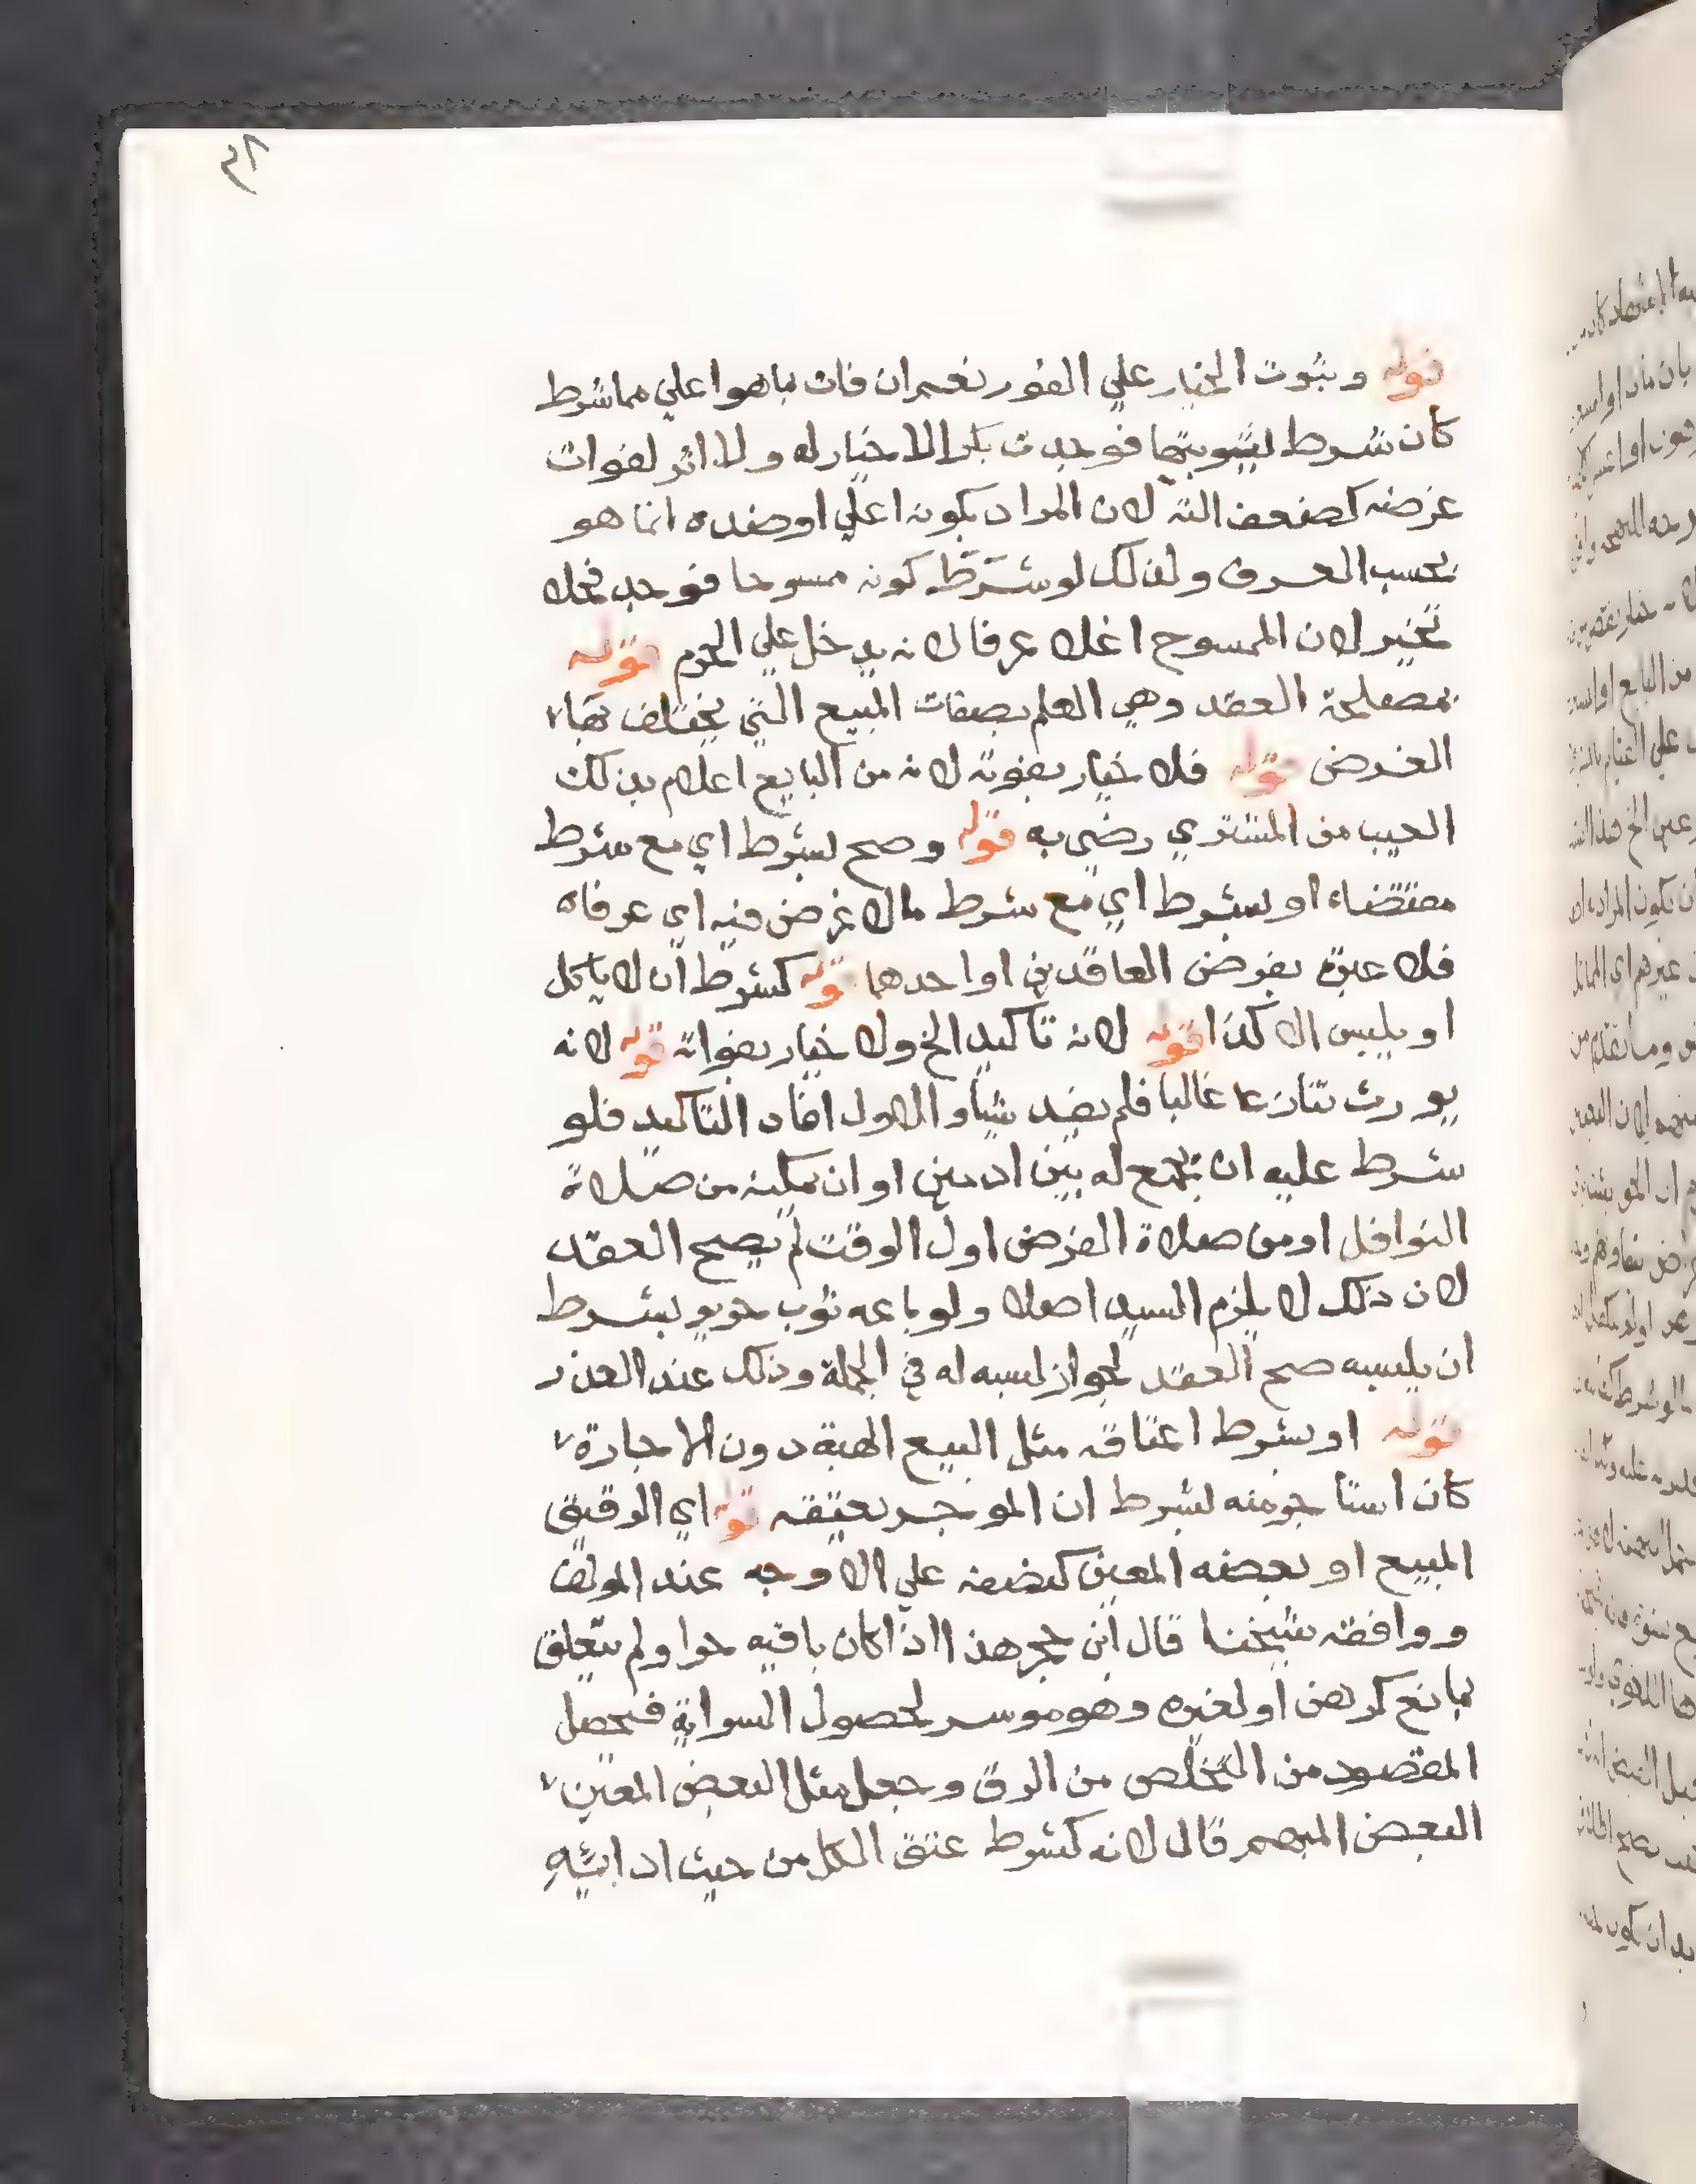 ٣٨
قوله وثبوت الخيار علي الفور نعم ان فات ما هوا علي مما شرط
كان شرط ثيوبتها فوجدت بكرا لا خيار له ولا اثر لفوات
غرضه كضعف الته لان المراد بكونه اعلي او ضده انما هو
بحسب العرف ولذلك لو شرط كونه ممسوحا فوجد فحلا
تخير لان الممسوح اغلا عرفا لانه يدخل علي الحرم قوله
بمصلحة العقد وهي العلم بصفات المبيع التي يختلف بها
الغرض قوله فلا خيار بفوته لانه من البايع اعلام بذلك
العيب من المشتري رضي به قوله وصح بشرط اي مع شرط
مقتضاه او بشرط اي مع شرط مالا غرض فيه اي عرفا
فلا عبرة بغرض العاقدين او احدهما قوله كشرط ان لا ياكل
او يلبس الا كذا قوله لانه تاكيد الخ ولا خيار بفواته قوله لانه
يورث تنازعا غالبا فلم يفد شيا والاول افاد التاكيد فلو
شرط عليه ان يجمع له بين ادمين او ان يمكنه من صلاة
النوافل او من صلاة الفرض اول الوقت لم يصح العقد
لان ذلك لا يلزم السيد اصلا ولو باعه ثوب حرير بشرط
ان يلبسه صح العقد لجواز لبسه له في الجملة وذلك عند العذر
قوله او بشرط اعتاقه مثل البيع الهبة دون الاجارة
كان استاجر منه بشرط ان الموجر يعتقه قوله اي الرقيق
المبيع او بعضه المعين كنصفه علي الاوجه عند المولف
ووافقه شيخنا قال ابن حجر هذا اذا كان باقيه حرا ولم يتعلق
بمانع كرهن او لغيره وهو موسر لحصول السراية فيحصل
المقصود من التخلص من الرق وجعل مثل البعض المعين
البعض المبهم قال لانه كشرط عتق الكل من حيث اداىئه